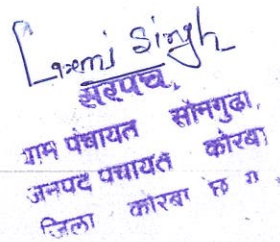 Laxmi Singh
सरपंच,
ग्राम पंचायत सोनगुढ़ा,
जनपद पंचायत कोरबा
जिला कोरबा छ ग